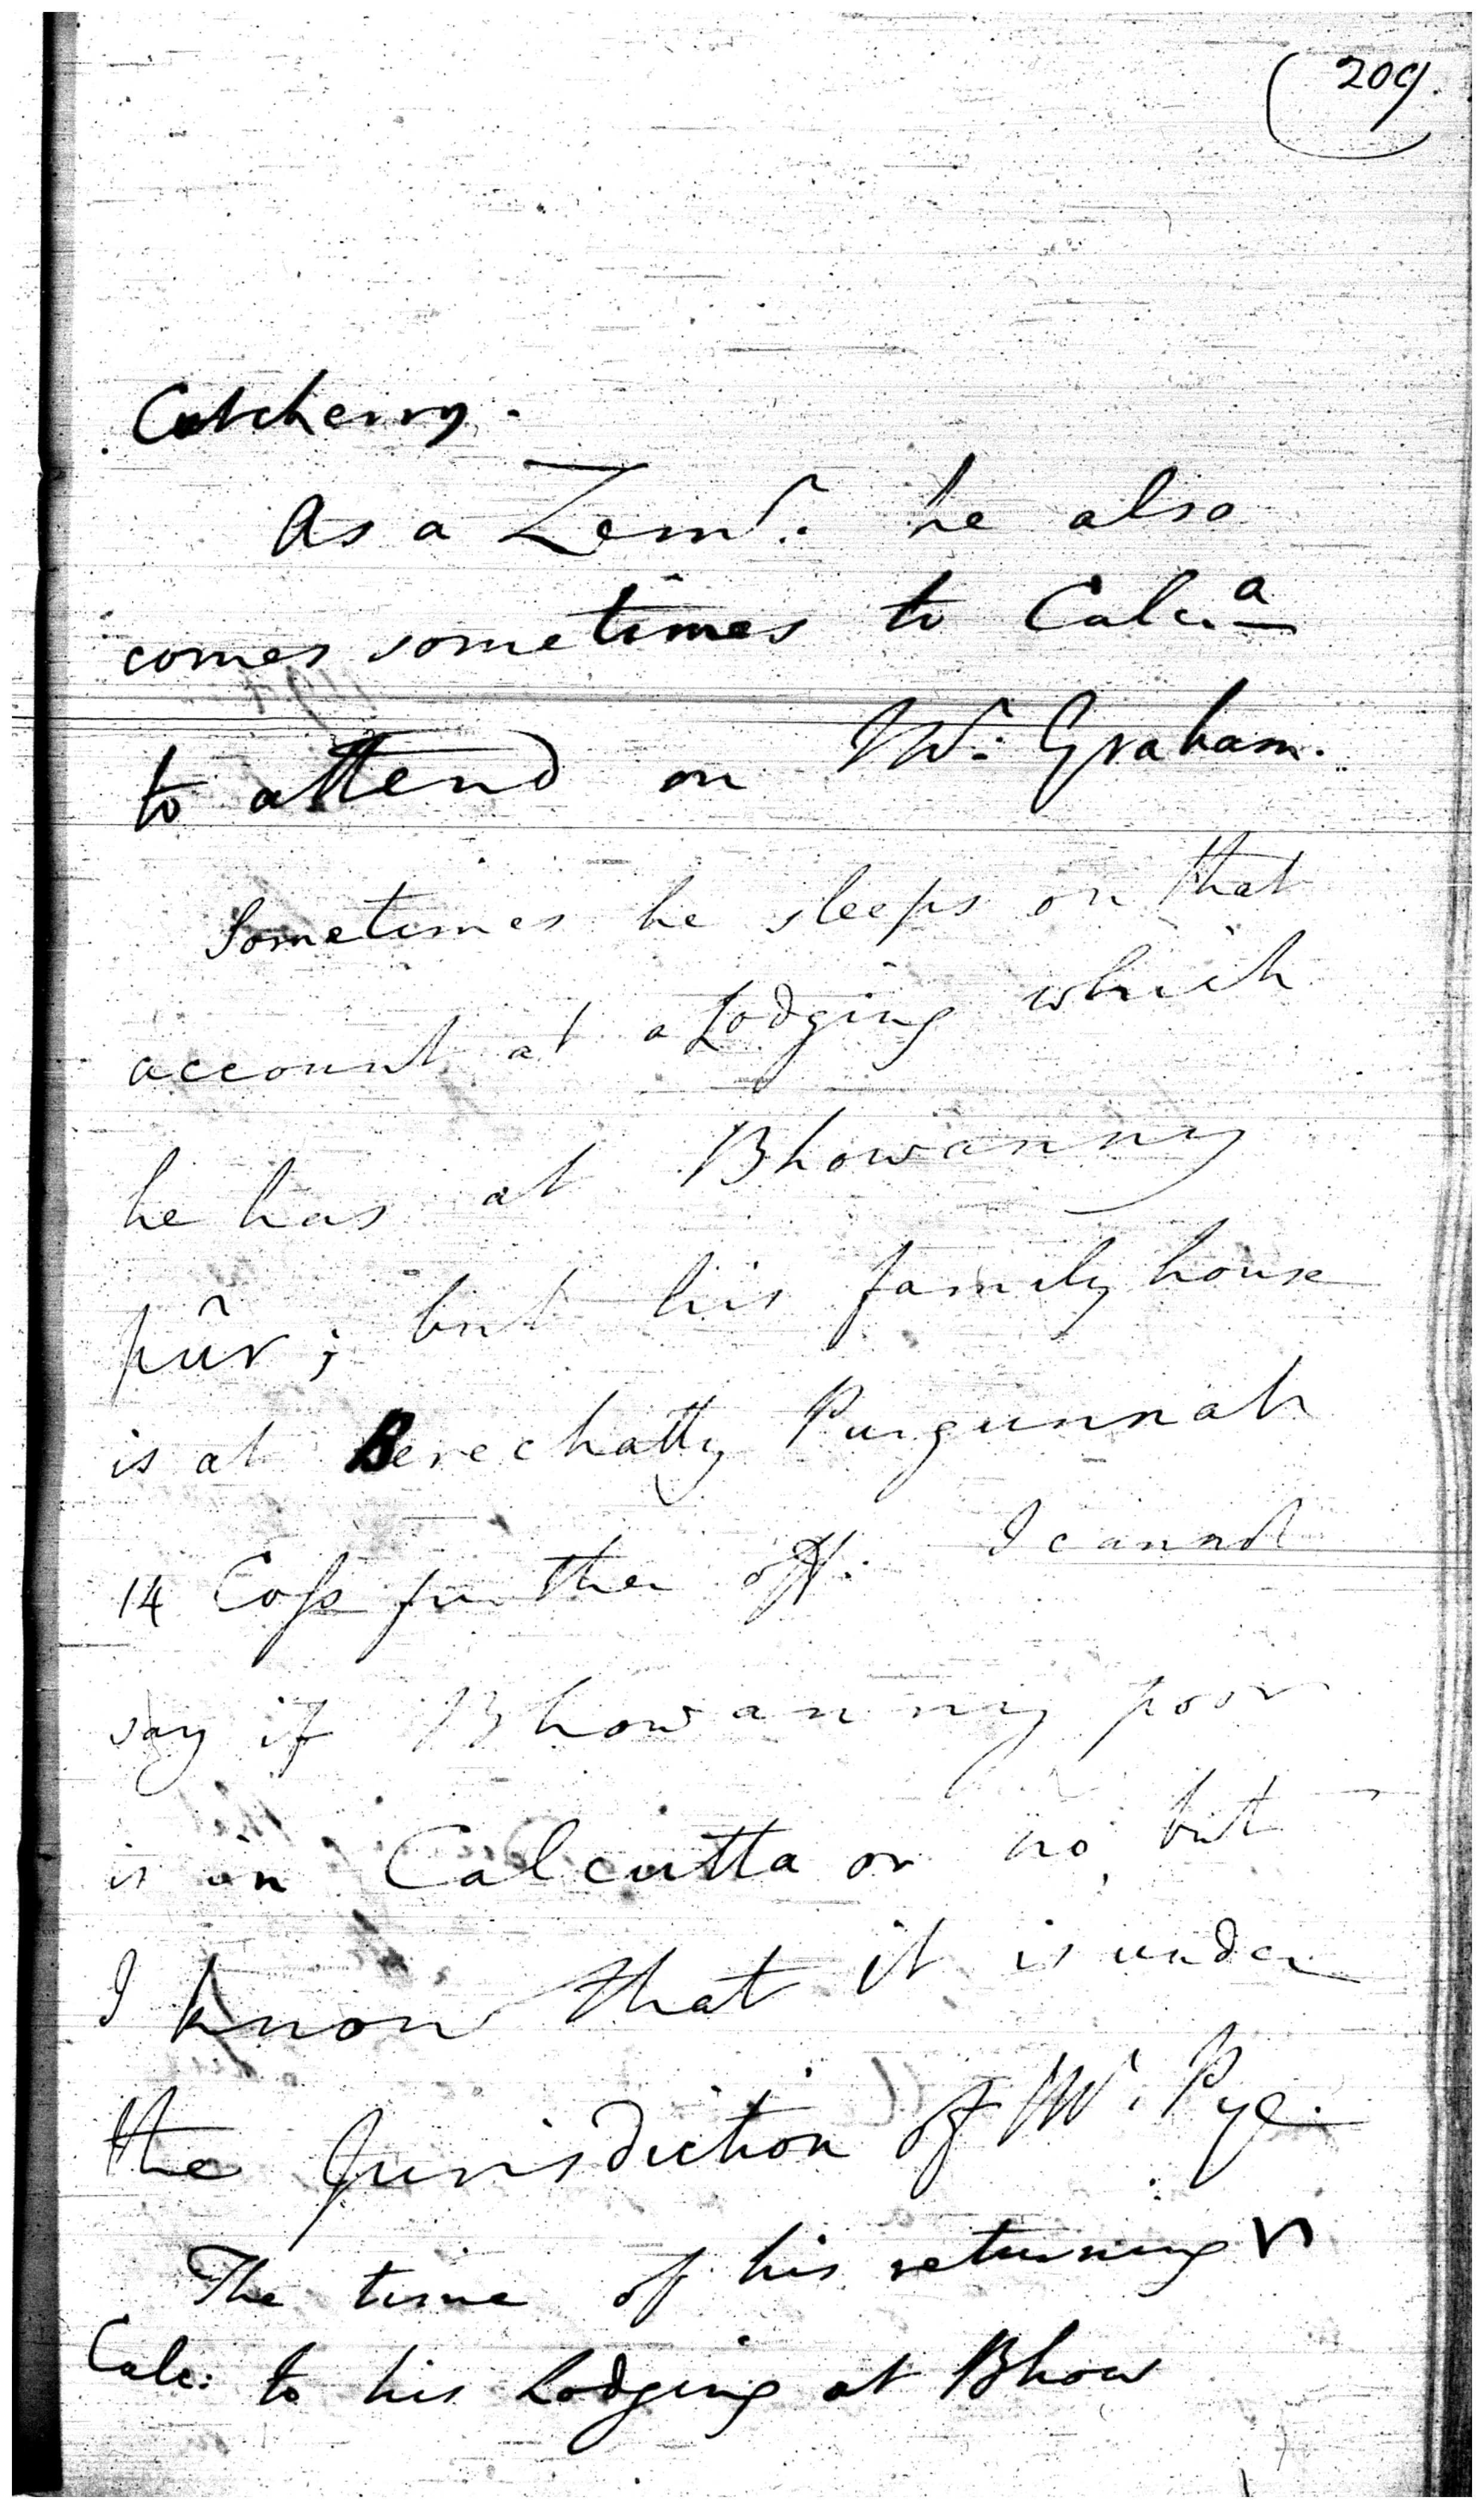 209.
Cutcherry.
As a Zemr. he also
comes sometimes to Calc.a
to attend on Mr. Graham.
Sometimes he sleeps on that
account at a Lodging which
he has at Bhowanny
pûr; but his family house
is at Berechatty Purgunnah
14 Coſs further off. I cannot
say if Bhowanny poor
is in Calcutta or no, but
I know that it is under
the Jurisdiction of Mr. Pye.
The time of his returning
Calc: to his Lodging at Bhow